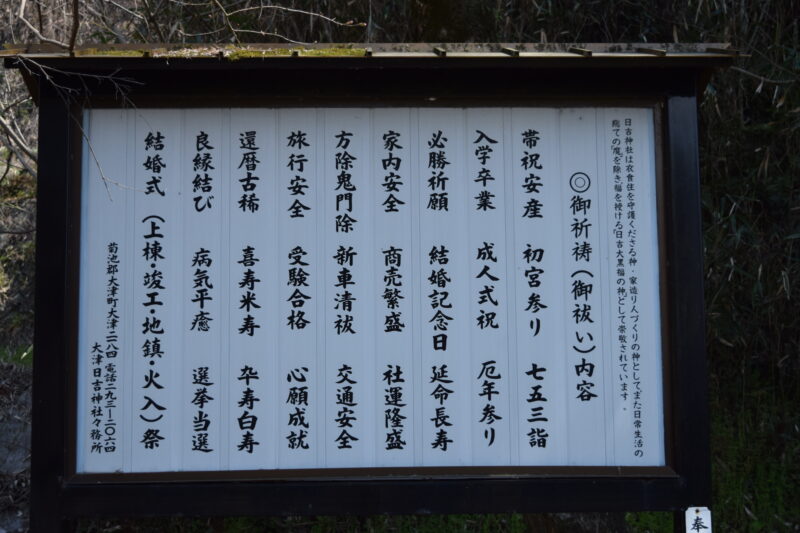 日吉神社は衣食住を守護くださる神・家造り人づくりの神としてまた日常生活の
総ての「魔」を除き「福」を授ける「日吉大黒福の神」として崇敬されています。
◎御祈祷(御祓い)内容
帯祝安産 初宮参り 七五三詣
入学卒業 成人式祝 厄年参り
必勝祈願 結婚記念日 延命長寿
家内安全 商売繁盛 社運隆盛
方除鬼門除 新車清祓 交通安全
旅行安全 受験合格 心願成就
還暦古稀 喜寿米寿 卒寿白寿
良縁結び 病気平癒 選挙当選
結婚式 (上棟・竣工・地鎮・火入)祭
菊池郡大津町大津二一八四 電話二九三―二〇六四
大津日吉神社々務所
奉